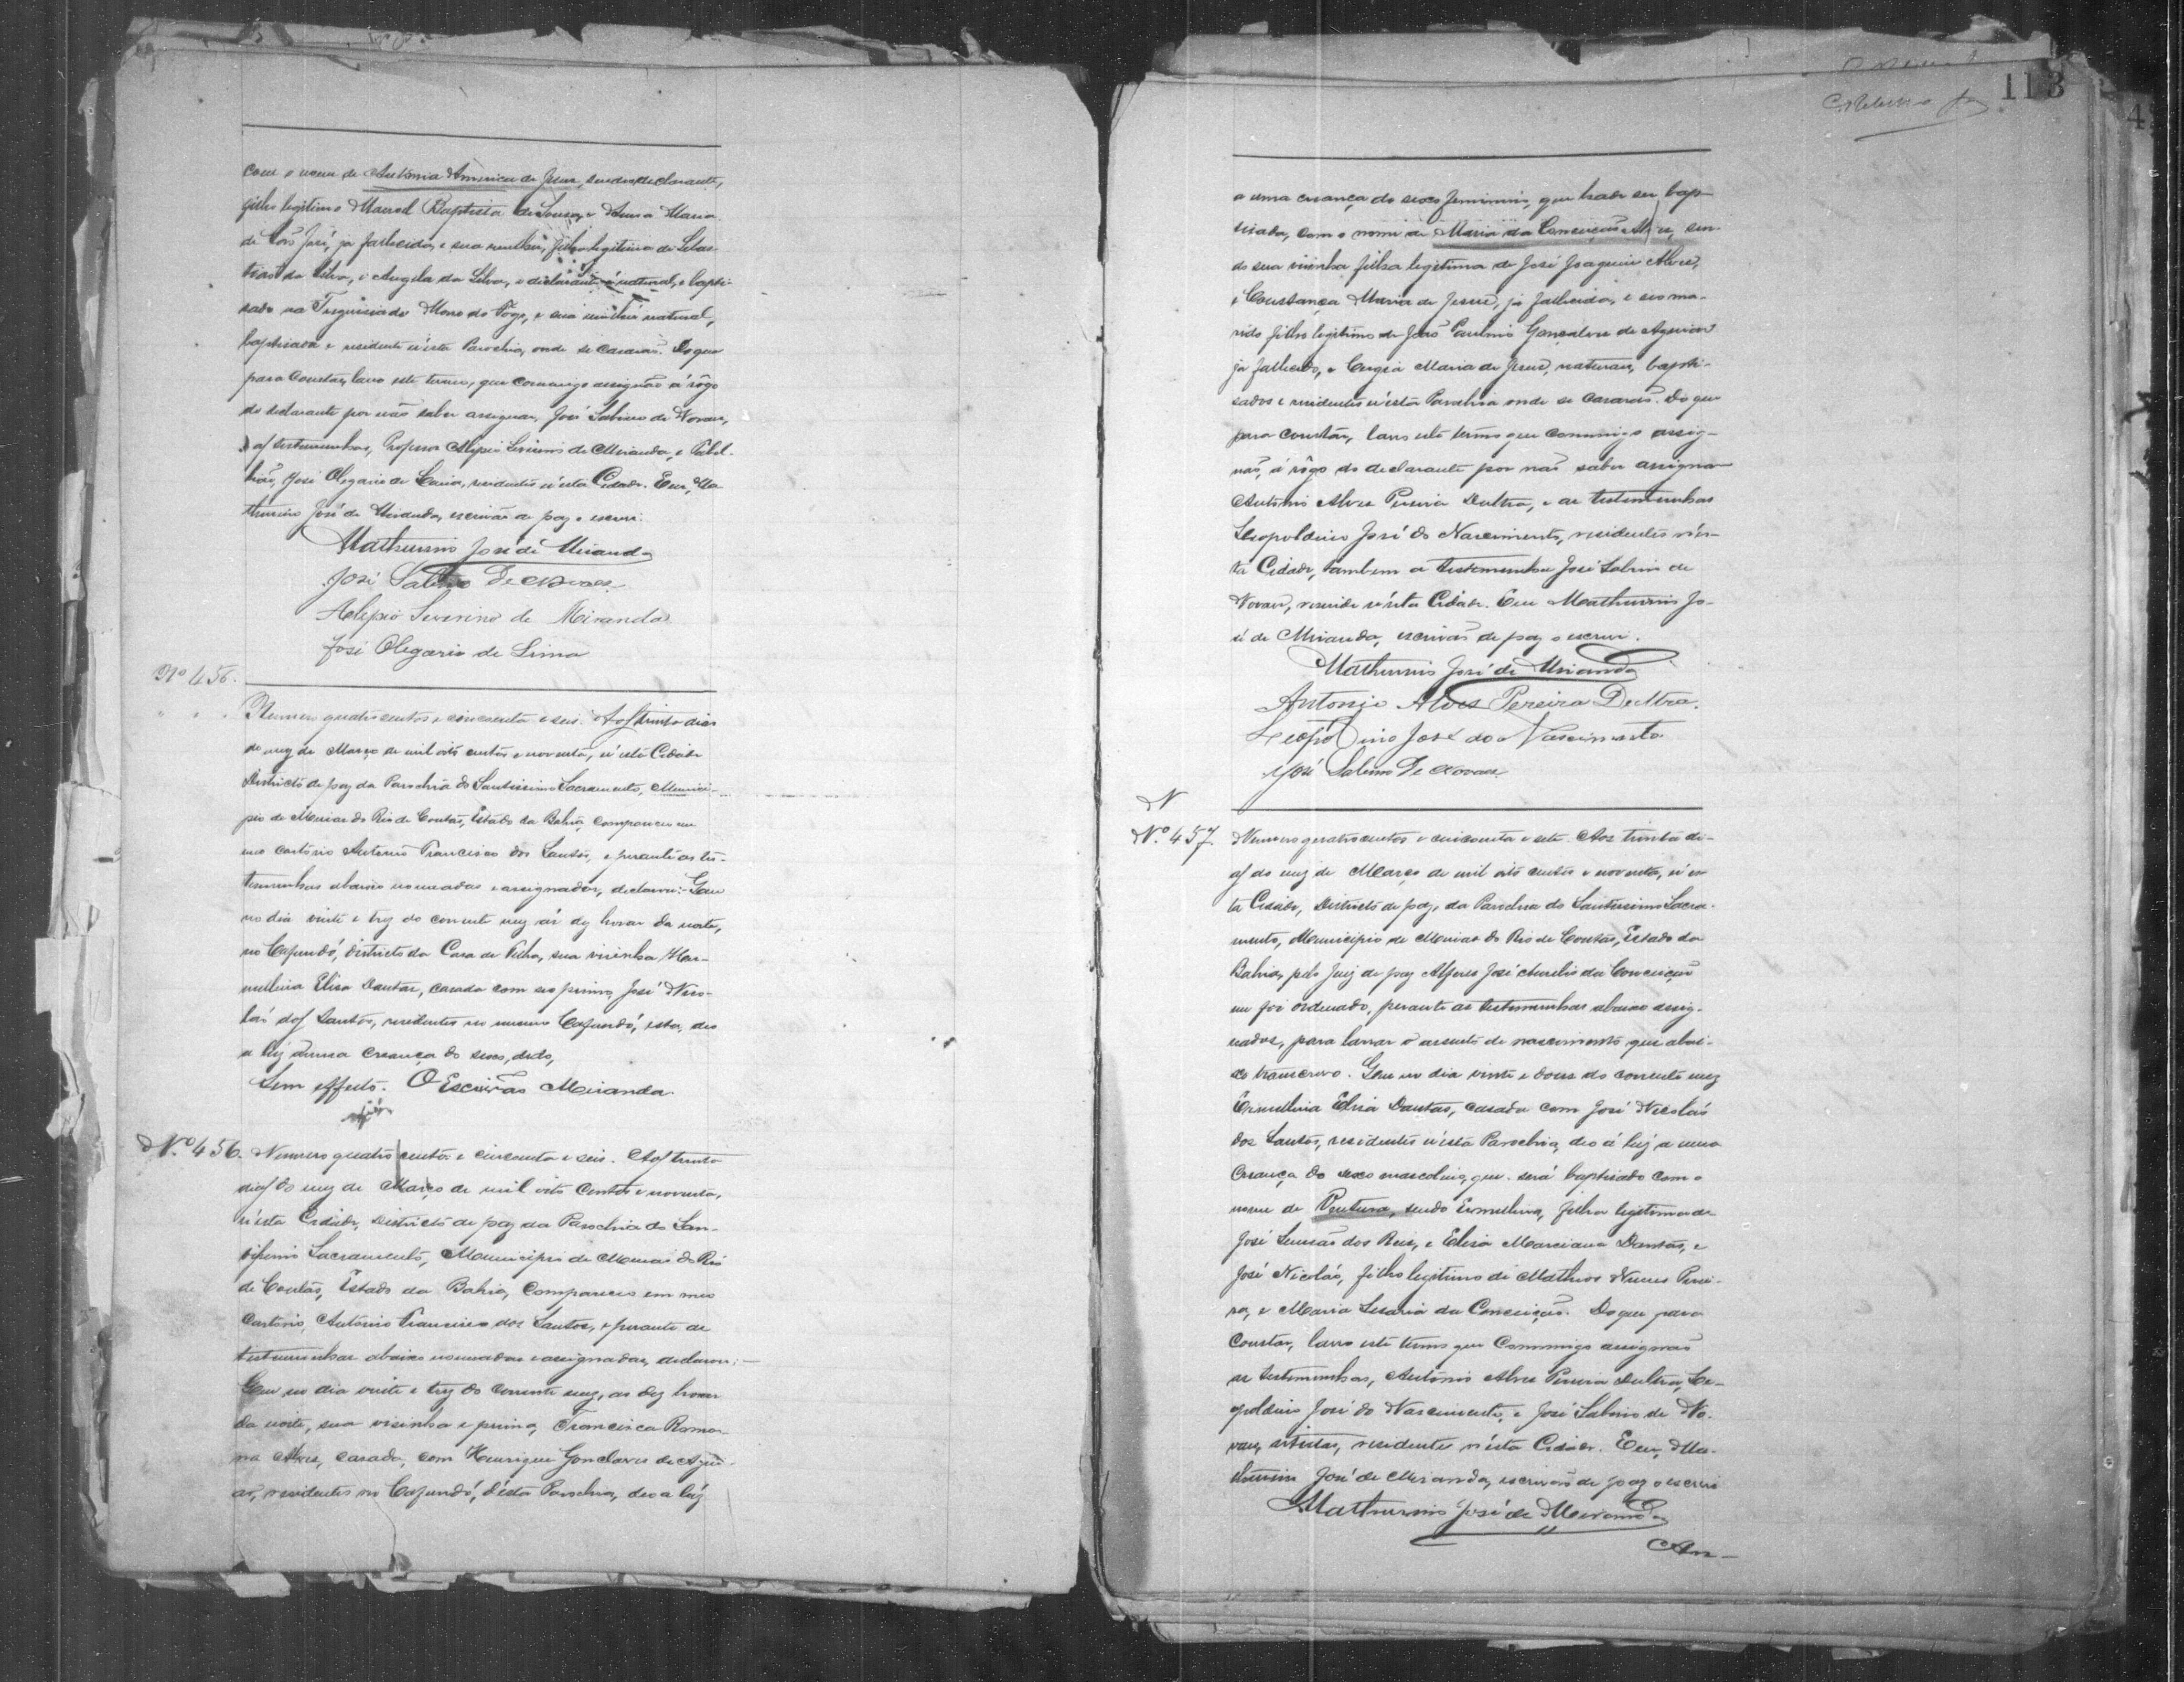 com o nome de Antonia America de Jesus, sendo, declarante,
filho legitimo Manoel Baptista de Sousa, e Anna Maria
de São José, já fallecida, e sua mulher, filha legitima de Sebas-
tião da Silva, e Angela da Silva, o declarante é natural, e bapti-
sado na Freguisia do Morro do Fogo, e sua mulher natural,
baptisada e residente n'esta Parochia, onde se casarão. Do que
para constar, lavro este termo, que commigo assignão á rôgo
do declarante por não saber assignar, José Sabino de Novaes,
e as testemunhas, Professor Alipio Severino de Miranda, e Tabel-
lião, José Olegario de Lima, residentes n'esta Cidade. Eu, Ma-
thurino José de Miranda, escrivão de paz o escrevi.
Mathurino José de Miranda
José Sabino de Novaes
Alipio Severino de Miranda
José Olegario de Lima
Nº 456.
Numero quatro centos e cincoenta e seis. Aos trinta dias
do mez de Março de mil oito centos e noventa, n'esta Cidade
Districto de paz da Parochia do Santissimo Sacramento, Munici-
pio de Minas do Rio de Contas, Estado da Bahia, compareceu em
meo cartorio Antonio Francisco dos Santos, e perante as tes-
temunhas abaixo nomeadas e assignadas, declarou:- Que
no dia vinte e trez do corrente mez, ás dez horas da noite,
no Cafundó, districto da Casa de Telha, sua visinha Her-
mellina Elisa Dantas, casada com seo primo, José Nico-
láo dos Santos, residentes no mesmo Cafundó, esta, deo
a luz á uma creança do sexo, dido,
Sem effeito. O Escrivão Miranda.
Nº 456. Numero quatro centos e cincoenta e seis. Aos trinta
dias do mez de Março de mil oito centos e noventa,
n'esta Cidade, Districto de paz da Parochia do San-
tissimo Sacramento, Municipio de Minas do Rio
de Contas, Estado da Bahia, compareceo em meo
Cartorio, Antonio Francisco dos Santos, e perante as
testemunhas abaixo nomeadas e assignadas, declarou:-
Que no dia vinte e trez do corrente mez, as dez horas
da noite, sua visinha e prima, Francisca Roma-
na Alves, casada, com Henrique Gonclaves de Agui-
ar, residentes no Cafundó, d'esta Parochia, deo a luz
113
a uma creança do sexo feminino, que hade ser bap-
tisada, com o nome de Maria da Conceição Alves, sen-
do sua visinha filha legitima de José Joaquim Alves,
e Constança Maria de Jesus, já fallecida, e seo ma-
rido filho legitimo de João Paulino Gonçalves de Aguiar
já fallecido, e Maria de Jesus, naturaes, bapti-
sados e residentes n'esta Parochia onde se casarão. Do que
para constar, lavro este termo que commigo assig-
não, á rôgo do declarante por não saber assignar
Antonio Alves Pereira Dultra, e as testemunhas
Leopoldino José do Nascimento, residentes n'es-
ta Cidade, tambem a testemunha José Sabino de
Novaes, reside n'esta Cidade. Eu Mathurino Jo-
sé de Miranda, escrivão de paz o escrevi.
Mathurino José de Miranda
Antonio Alves Pereira Dultra.
Leopoldino José do Nascimento
José Sabino de Novaes
N
Nº. 457. Numero quatro centos e cincoenta e sete. Aos trinta di-
as do mez de Março de mil oito centos e noventa, n'es-
ta Cidade, Districto de paz, da Parochia do Santissimo Sacra-
mento, Municipio de Minas do Rio de Contas, Estado da
Bahia, pelo Juiz de paz Alferes José Aurelio da Conceição
me foi ordenado, perante as testemunhas abaixo assig-
nados, para lavrar o assento de nascimento que abai-
xo transcrevo. Que no dia vinte e dous do corrente mez
Ermellina Elisa Dantas, casada com José Nicoláo
dos Santos, residentes n'esta Parochia, deo á luz a uma
creança do sexo masculino, que será baptisado com o
nome de Ventura, sendo Ermelina, filha legitima de
José Simião dos Reis, e Elisa Marciana Dantas, e
José Nicoláo, filho legitimo de Matheos Nunes Perei-
ra, e Maria Lesaria da Conceição. Do que para
constar, lavro este termo que commigo assignão
as testemunhas, Antonio Alves Pereira Dultra, Le-
opoldino José do Nascimento, e José Sabino de No-
vaes, residentes n'esta Cidade. Eu, Ma-
thurino José de Miranda, escrivão de paz o escrevi
Mathurino José de Miranda
An-